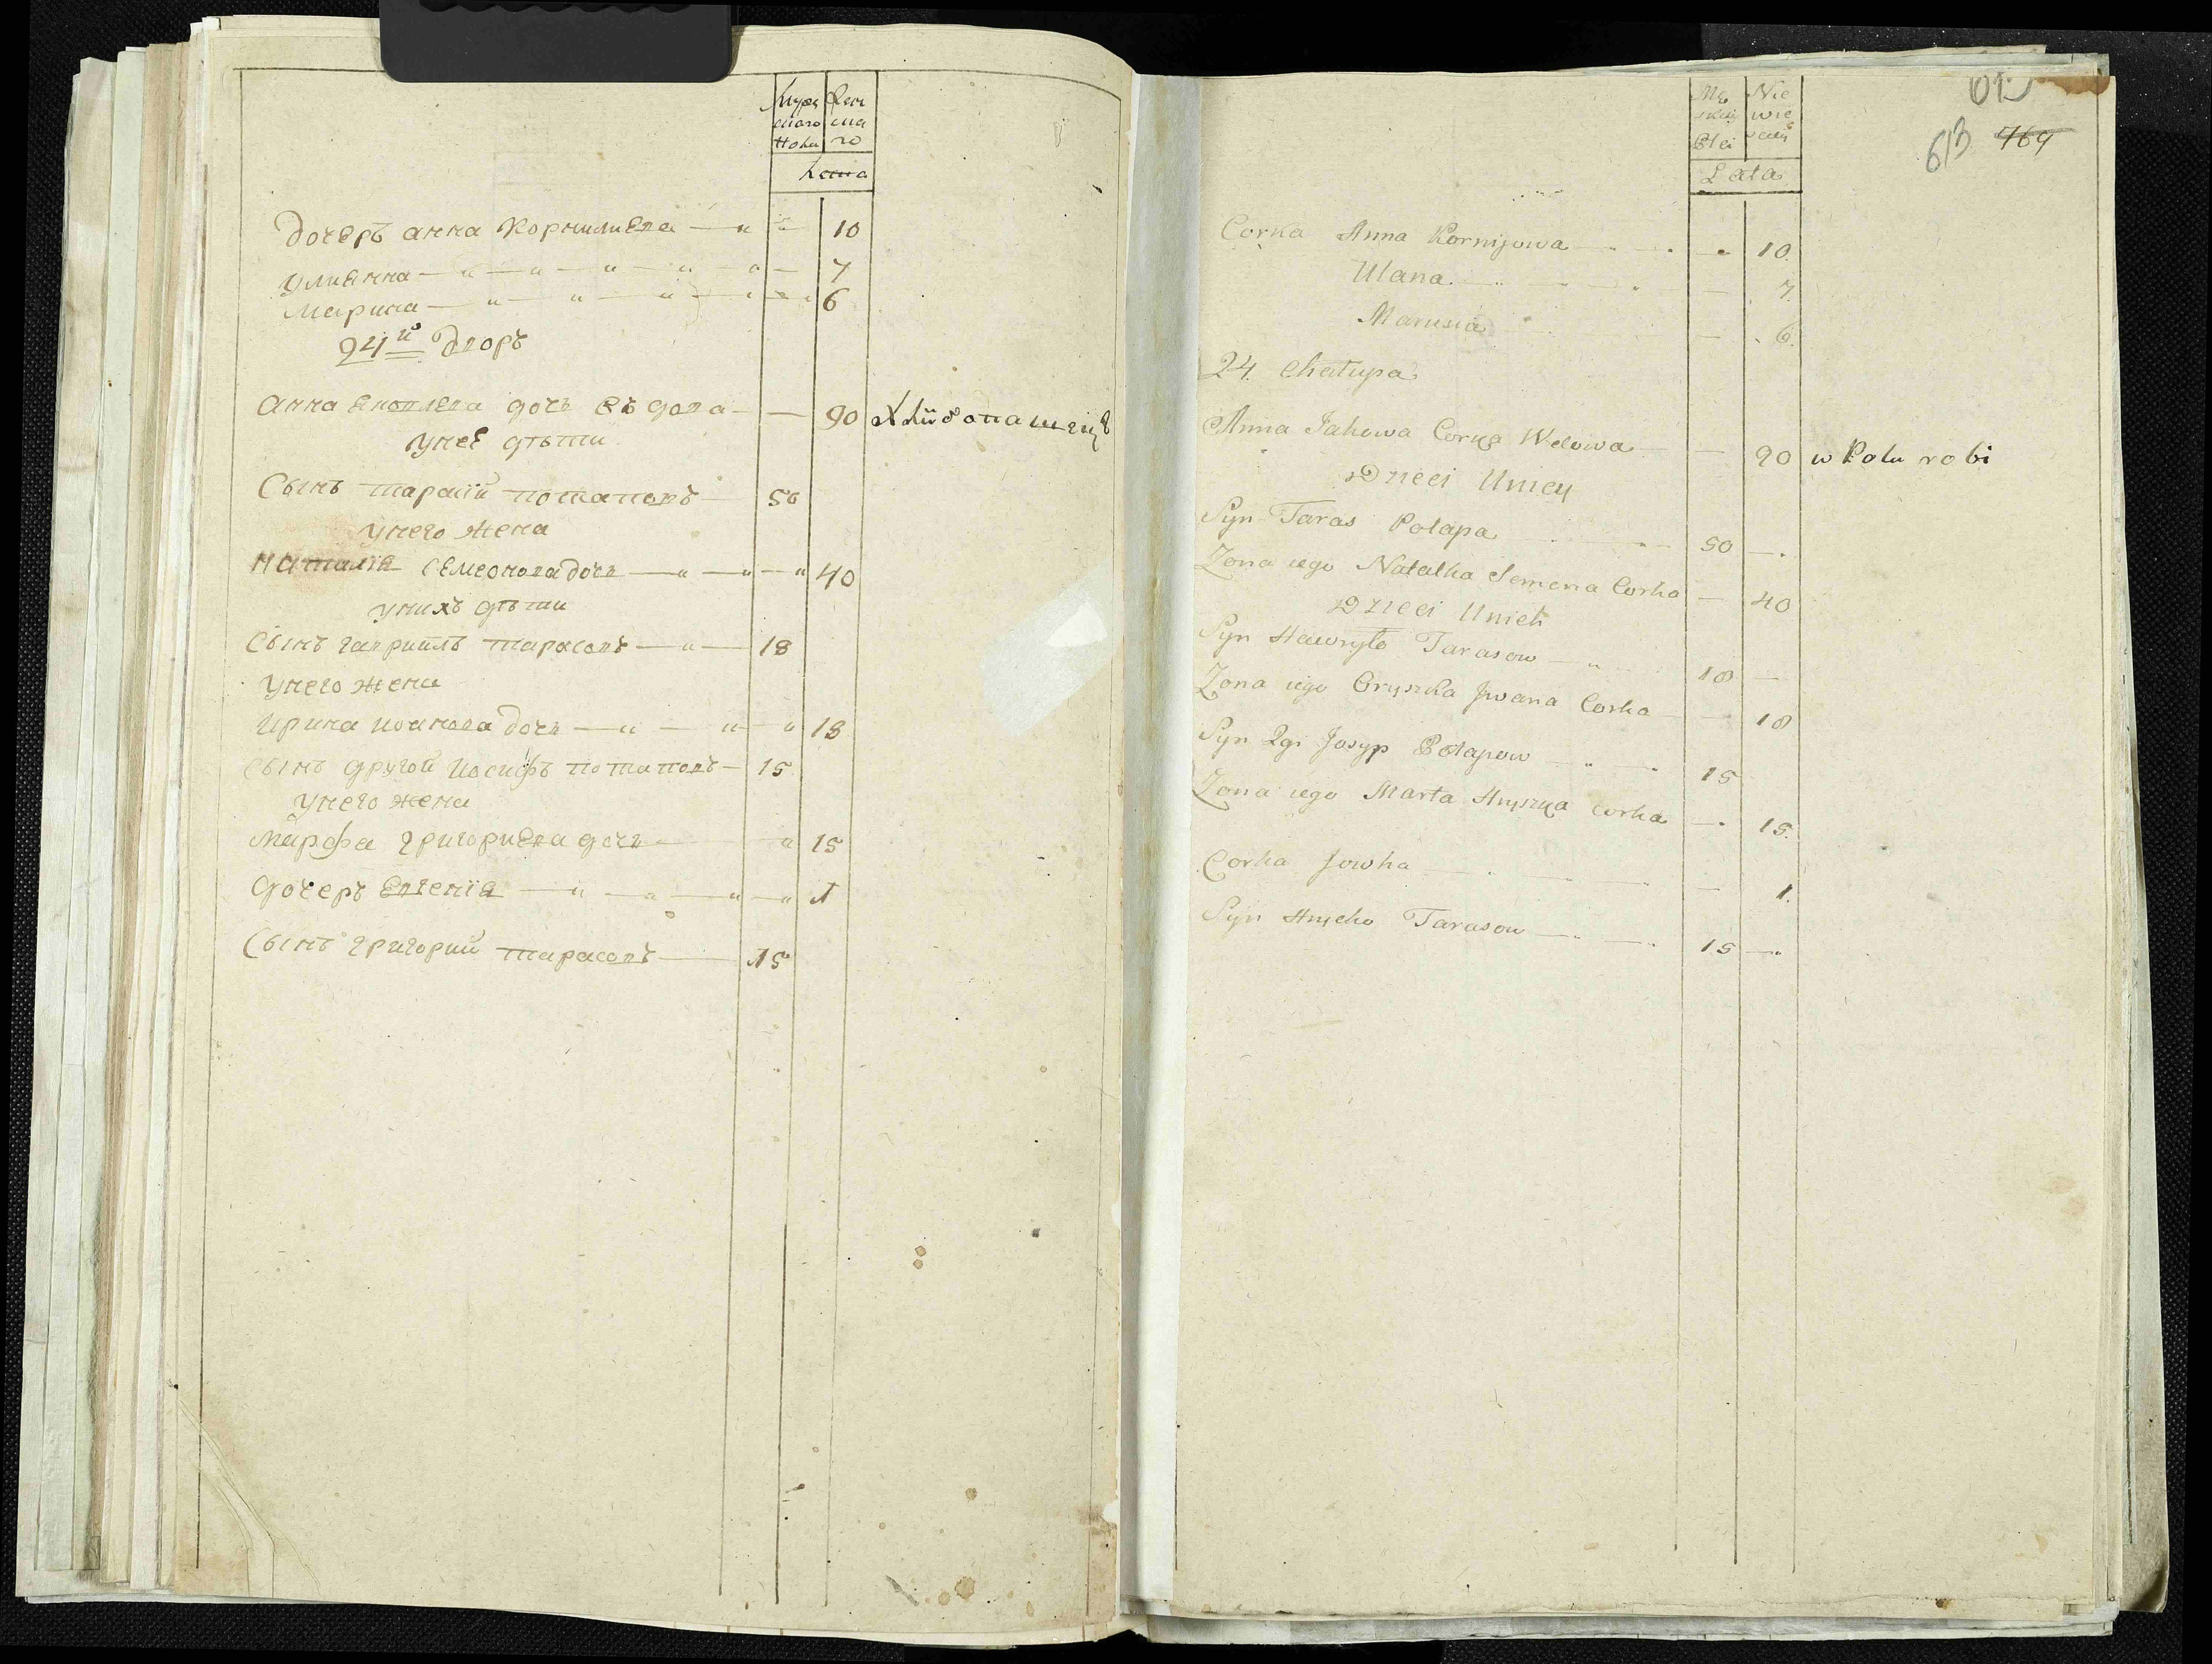 Муже
скаго
пола
Жен
ска
го
Лета
Дочеръ анна Корнилиева — 10
улиянна — 7
Марина — 6
24й Дворъ
Анна Яковлева дочь въдова — 90 Хлибопашецъ
унеё дѣти
Сынъ тарасій потаповъ 50
унего жена
Наталія Семеонова дочь — 40
унихъ дѣти
Сынъ гавриилъ тарасовъ — 18
унего жена
Ирина иванова дочь — 18
Сынъ другой Иосифъ потаповъ — 15
унего жена
Марфа григориева дочь — 15
Дочеръ Евгенія — 1
Сынъ григорий тарасовъ — 15
Mę
skiej
Płci
Nie
wie
sciej
Lata
613 769
Corka Anna Kornijowa — 10.
Ulana — 7.
Marusia — 6.
24. Chałupa
Anna Jakowa Corka Wdowa — 90 w Polu robi
Dzieci Uniey
Syn Taras Potapa — 50 —
Zona iego Natalka Semena Corka — 40
Dzieci Unich
Syn Hawryło Tarasow — 18 —
Zona iego Oryszka Jwana Corka — 18
Syn 2gi Josyp Potapow — 15
Zona iego Marta Hryszka corka — 15.
Corka Jowha — 1.
Syn Hryćko Tarasow — 15 —